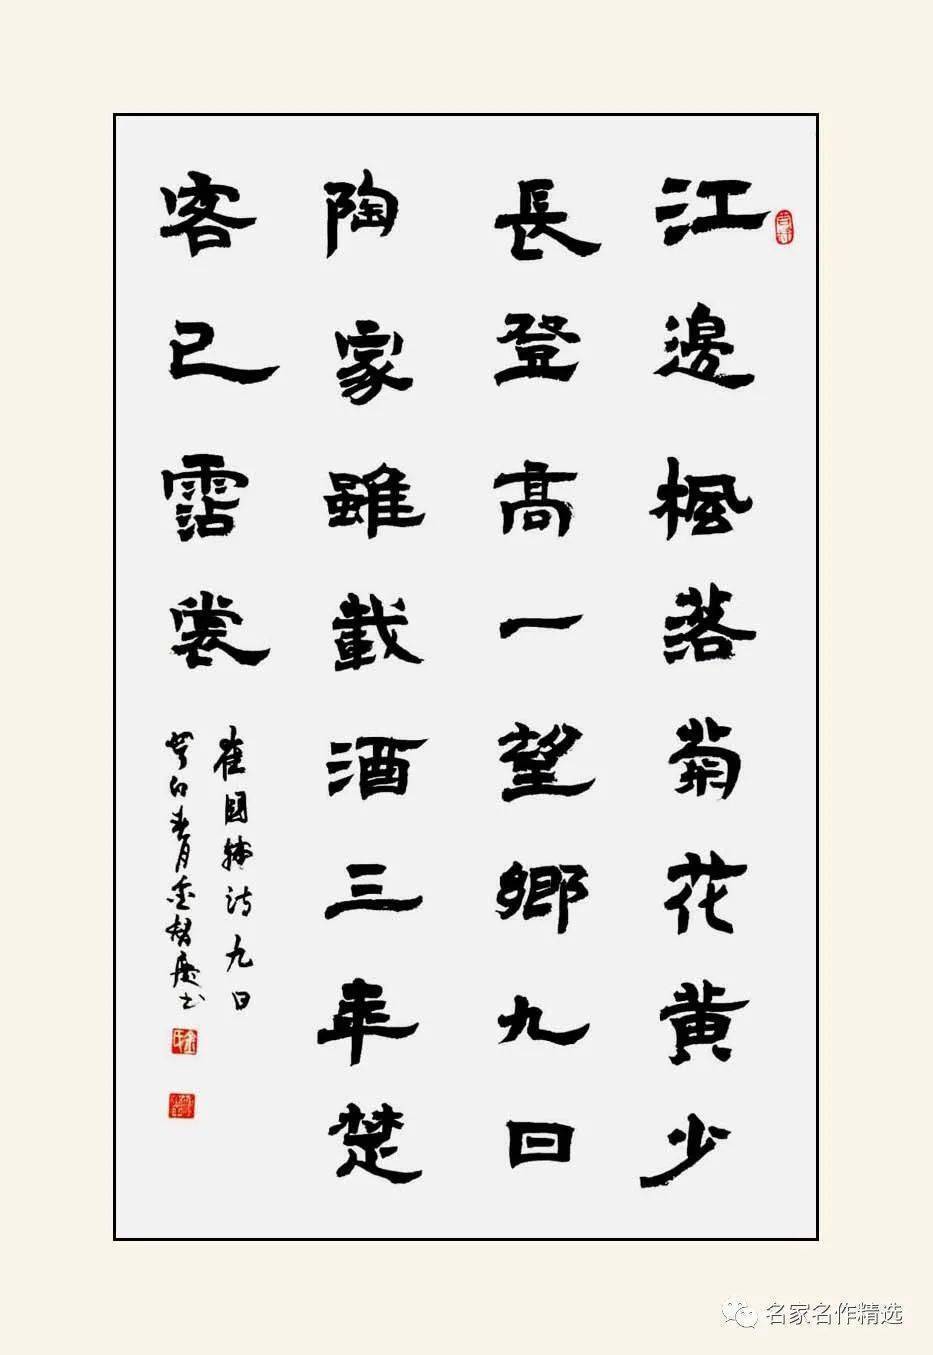 江邊楓落菊花黄少
長登高一望鄉九日
陶家雖載酒三年楚
客已霑裳
崔國輔詩九日
癸卯春月
名家名作精选